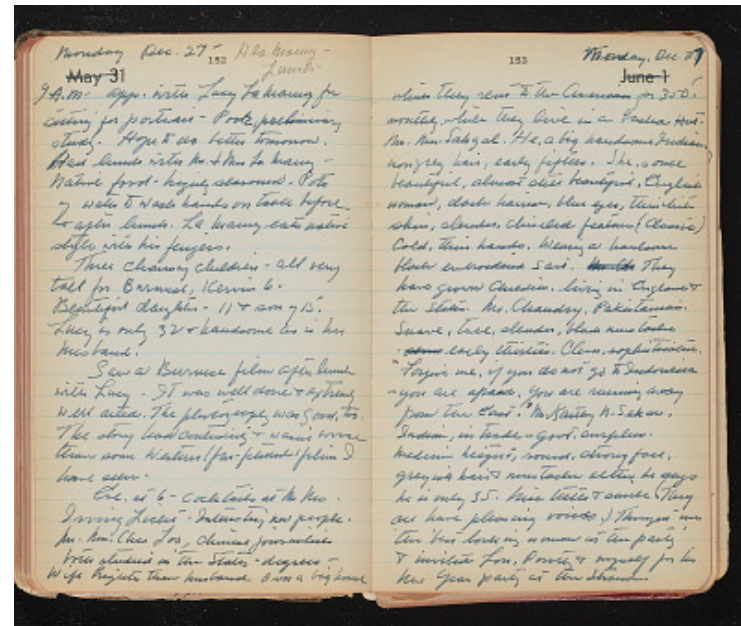 Monday Dec. 27
152
May 31
9 A.M. app. with Lucy La Maung for
sitting for portrait - Poor, preliminary
study. Hope to do better tomorrow.
Had lunch with Mr. & Mrs La Maung -
Native food - highly seasoned. Pots
of water to wash hands on table before
& after lunch. La Maung eats native
style with his fingers.
Three charming children - all very
tall for Burmese, 6.
Beautiful daughter - 11 & son of 15.
Lucy is only 32 & handsome as is her
husband.
Saw a Burmese film after lunch
with Lucy - It was well done & extremely
well acted. The photography was good, too.
The story had continuity & wasn't worse
than some Western far-fetched films I
have seen.
Eve. at 6 - cocktails at Mr. Mrs.
Irving - Interesting new people.
Mr. Mrs. Chinese journalist
both studied in the States - degrees -
Wife brighter than husband. Own a big house
153
Monday, Dec 27
June 1
which they rent to the American for 350
monthly, while they live in a
Mr. Mrs. Sahgal. He, a big handsome Indian,
iron grey hair, early fifties. She, some
beautiful, almost still beautiful, English
woman, dark hair, blue eyes, thin white
skin, slender, chiseled features (Classic)
Cold, thin hands. Wearing a handsome
black embroidered Sari. They
have grown children living in England &
the States. Mr. Chaudry, Pakistanian.
Suave, tall, slender, black mustache
early thirties. Clever, sophisticated.
"Forgive me, if you do not go to Indonesia
- you are afraid. You are running away
from the East." Mr. N. Sekar.
Indian, in trade - Govt. surplus.
medium height, round, strong face,
greying hair & mustache altho he says
he is only 35. Nice teeth & smile (They
all have pleasing voices.) Thinks I was
the best looking woman at the party
& invited Lon, & myself for his
New Year party at the Strand.